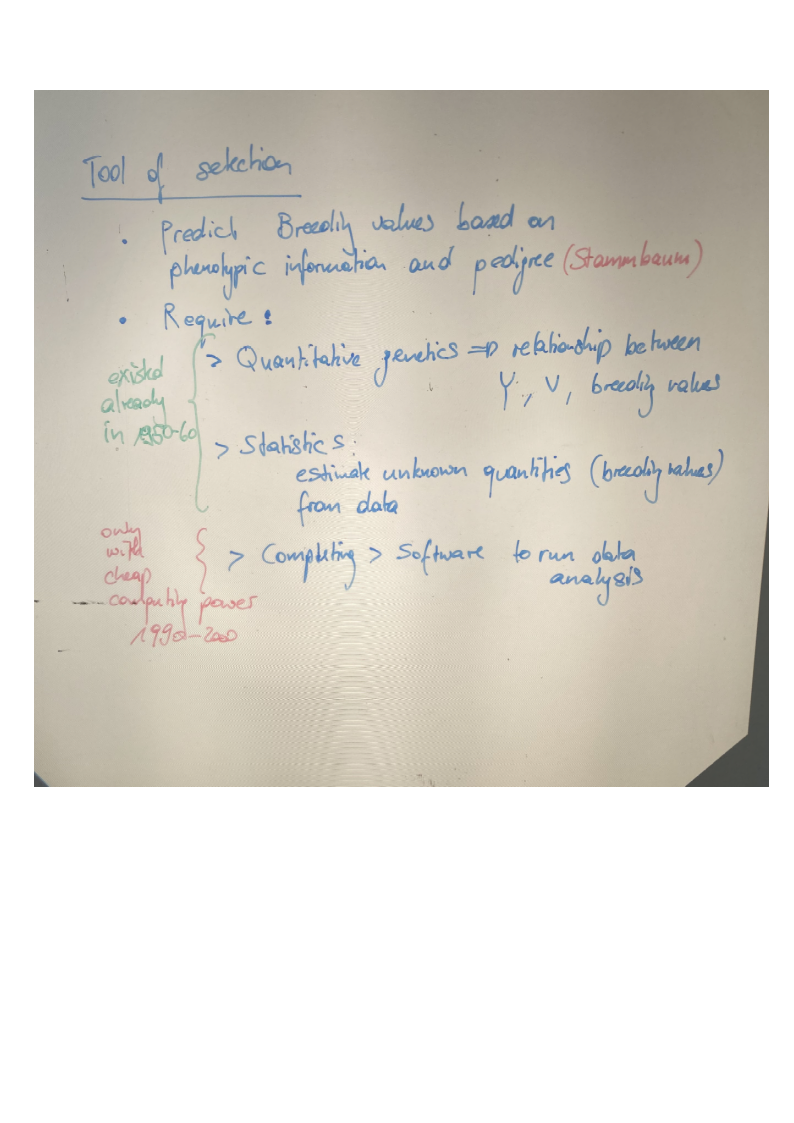 Tool of selection
• Predict Breeding values based on
phenotypic information and pedigree (Stammbaum)
• Require:
> Quantitative genetics => relationship between
Y, V, breeding values
existed
already
in 1950-60
> Statistics:
estimate unknown quantities (breeding values)
from data
only
with
cheap
computing power
1990-2000
> Computing > Software to run data
analysis